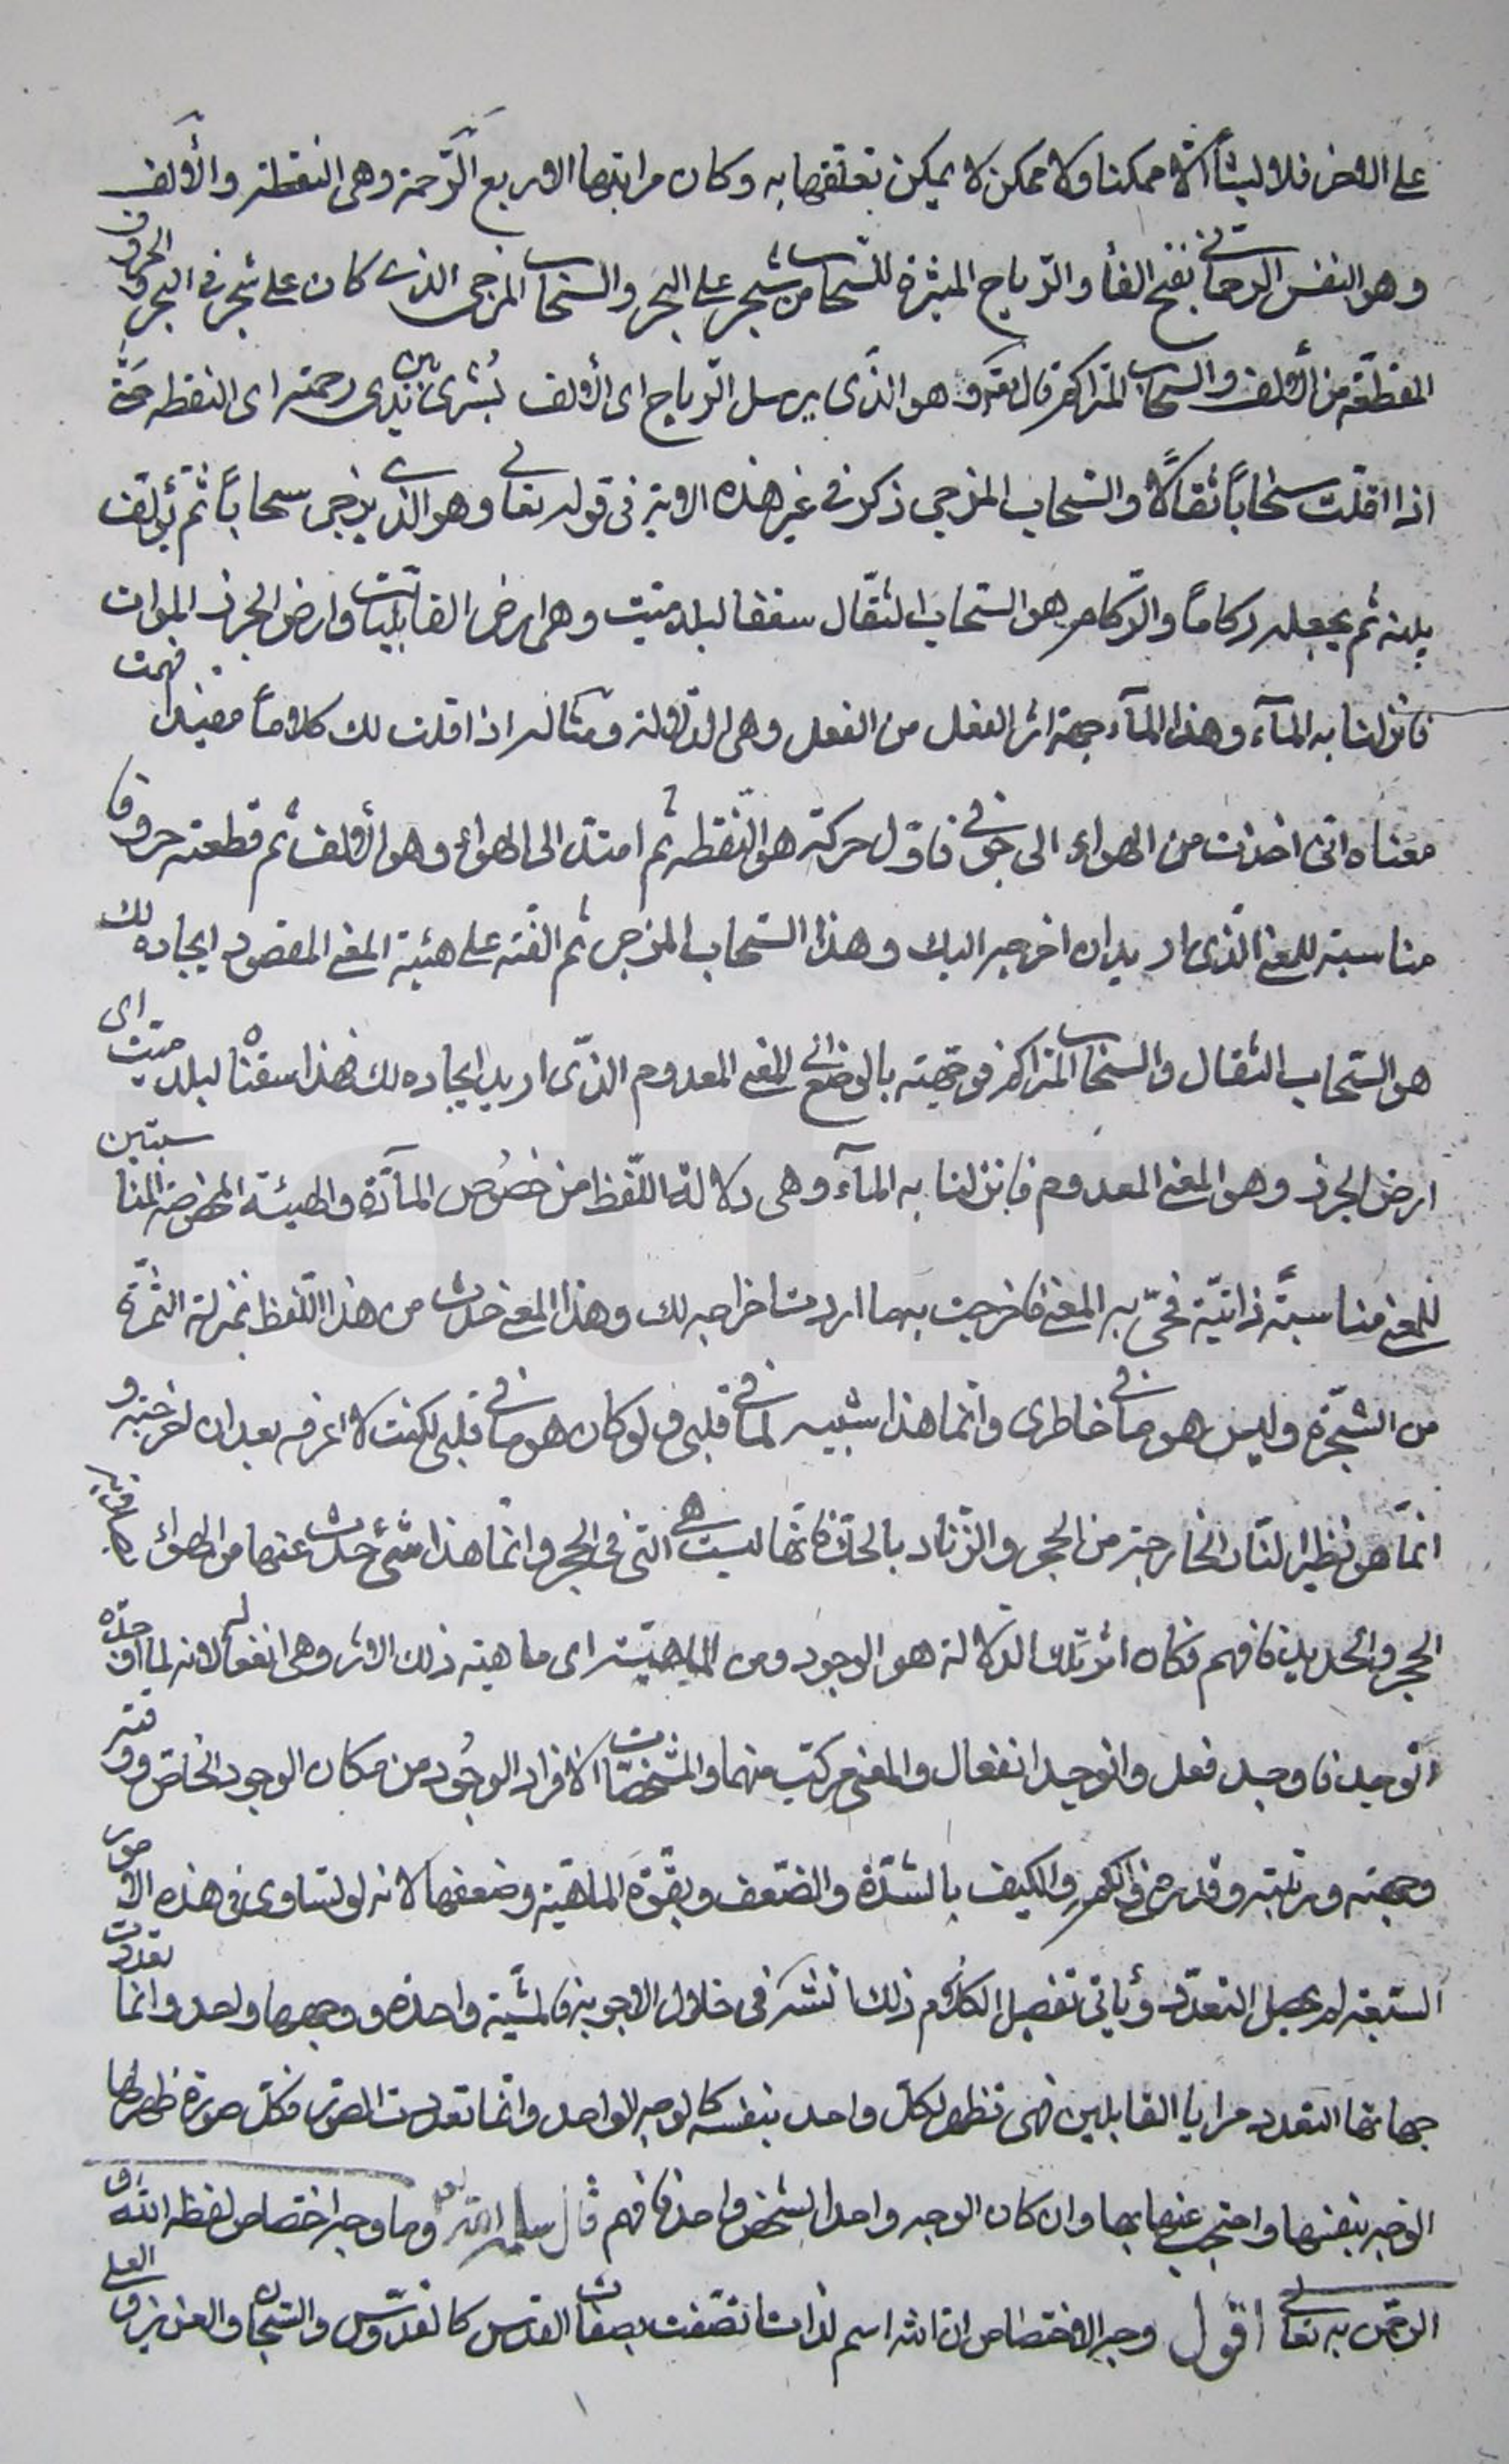 على الاخر فلا ليشأ الا ممكنا ولا ممكن لا يمكن تعلقها به وكان مراتبها الاربع الرّحمة وهى النقطة والألف
وهو النفس الرحمانى بفتح الفاء والرّياح المثيرة للسّحاب من شجر على البحر والسّحاب المزجى الذى كان على شجر فى البحر والحروف
المقطّعة من الألف والسّحاب المتراكم قال تعالى وهو الذّى يرسل الرّياح اى الألف بُشرى بين يدى رحمته اى النقطه حتّى
اذا اقلّت سحاباً ثقالاً والسّحاب المزجى ذكر فى غير هذه الاية فى قوله تعالى وهو الذى يزجى سحاباً ثم يؤلّف
بينه ثم يجعله ركاماً والرّكام هو السّحاب الثقال سقنا لبلد ميّت وهى ارض القابليّات وارض الجرز الموات
فانزلنا به المآء وهذا المآء جهة اثر الفعل من الفعل وهى الدّلالة ومثاله اذا قلت لك كلاماً فهمت
معناه انّى اخذت من الهواء الى جوفى فاوّل حركة هو النّقطه ثم امتدّ الى الهواء وهو الألف ثم قطعته حروفا
مناسبة للمعنى الّذى اريد ان اخرجه اليك وهذا السّحاب المزجى ثم الّفته على هيئة المعنى المقصود ايجاده لك
هو السّحاب الثقال والسّحاب المتراكم فوجّهته بالوضع الى المعنى المعدوم الذّى اريد ايجاده لك فهذا سقناه لبلد ميّت اى
ارض الجرز وهو المعنى المعدوم فانزلنا به المآء وهى دلالة اللّفظ من خصُوص المآدّة والهيئة المخصوصة المناسبتين
للمعنى مناسبةً ذاتيّة فحىّ به المعنى فاخرجت بهما اردت اخراجه لك وهذا المعنى حدث من هذا اللّفظ بمنزلة الثّمرة
من الشّجرة وليس هو ما فى خاطرى وانما هذا شبيه لما فى قلبى ولو كان هو ما فى قلبى لكنت لا اعرفه بعد ان اخرجته و
انّما هو نظير النّار الخارجة من الحجر والزّناد بالحكّ فانّها ليست هى التى فى الحجر وانّما هذا شئ حدث عنها من الهواء
الحجر والحديد فافهم فكان اثر تلك الدّلالة هو الوجود ومن الماهيّة اى ماهية ذلك الاثر وهى انفعاله لانه لما اوجده
انوجد فاوجد فعل وانوجد انفعال والمعنى مركّب منهما والمشخّصات لافراد الوجُود من مكان الوجود الخاصّ ووقته
وجهته ورتبته وقدره فى الكم والكيف بالشدّة والضّعف وبقوّة الماهيّة وضعفها لانه لو تساوى فى هذه الامور
السّبعة لم يحصل التعدّد ويأتى تفصيل الكلام ذلك انتشر فى خلال الاجوبة فالمشيّة واحدة ووجهها واحد وانّما تعددت
جهاتها التعدد مرايا القابلين فهى تظهر لكلّ واحد بنفسه كالوجه الواحد وانّما تعددت الصّور فكلّ صورة ظهر لها
الوجه بنفسها واحتجب عنها بها وان كان الوجه واحدا لشخص واحد فافهم قال سلمه الله وما وجه اختصاص لفظة الله و
الرحمن به تعالى اقول وجه الاختصاص ان الله اسم لذات اتصفت بصفات القدس كالقدّوس والسّبحان والعزيز والعلى